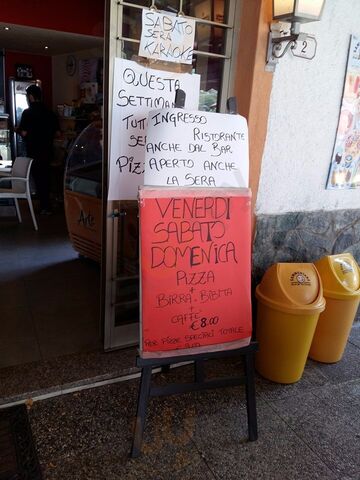 SABATO
SERA
KARAOKE
QUESTA
SETTIMAN
TUTT
SE
PIZ
INGRESSO
RISTORANTE
ANCHE DAL BAR
APERTO ANCHE
LA SERA
VENERDI
SABATO
DOMENICA
PIZZA
+
BIRRA-BIBITA
+
CAFFE'
€8.00
PER PIZZE SPECIALI TOTALE
2
Arte